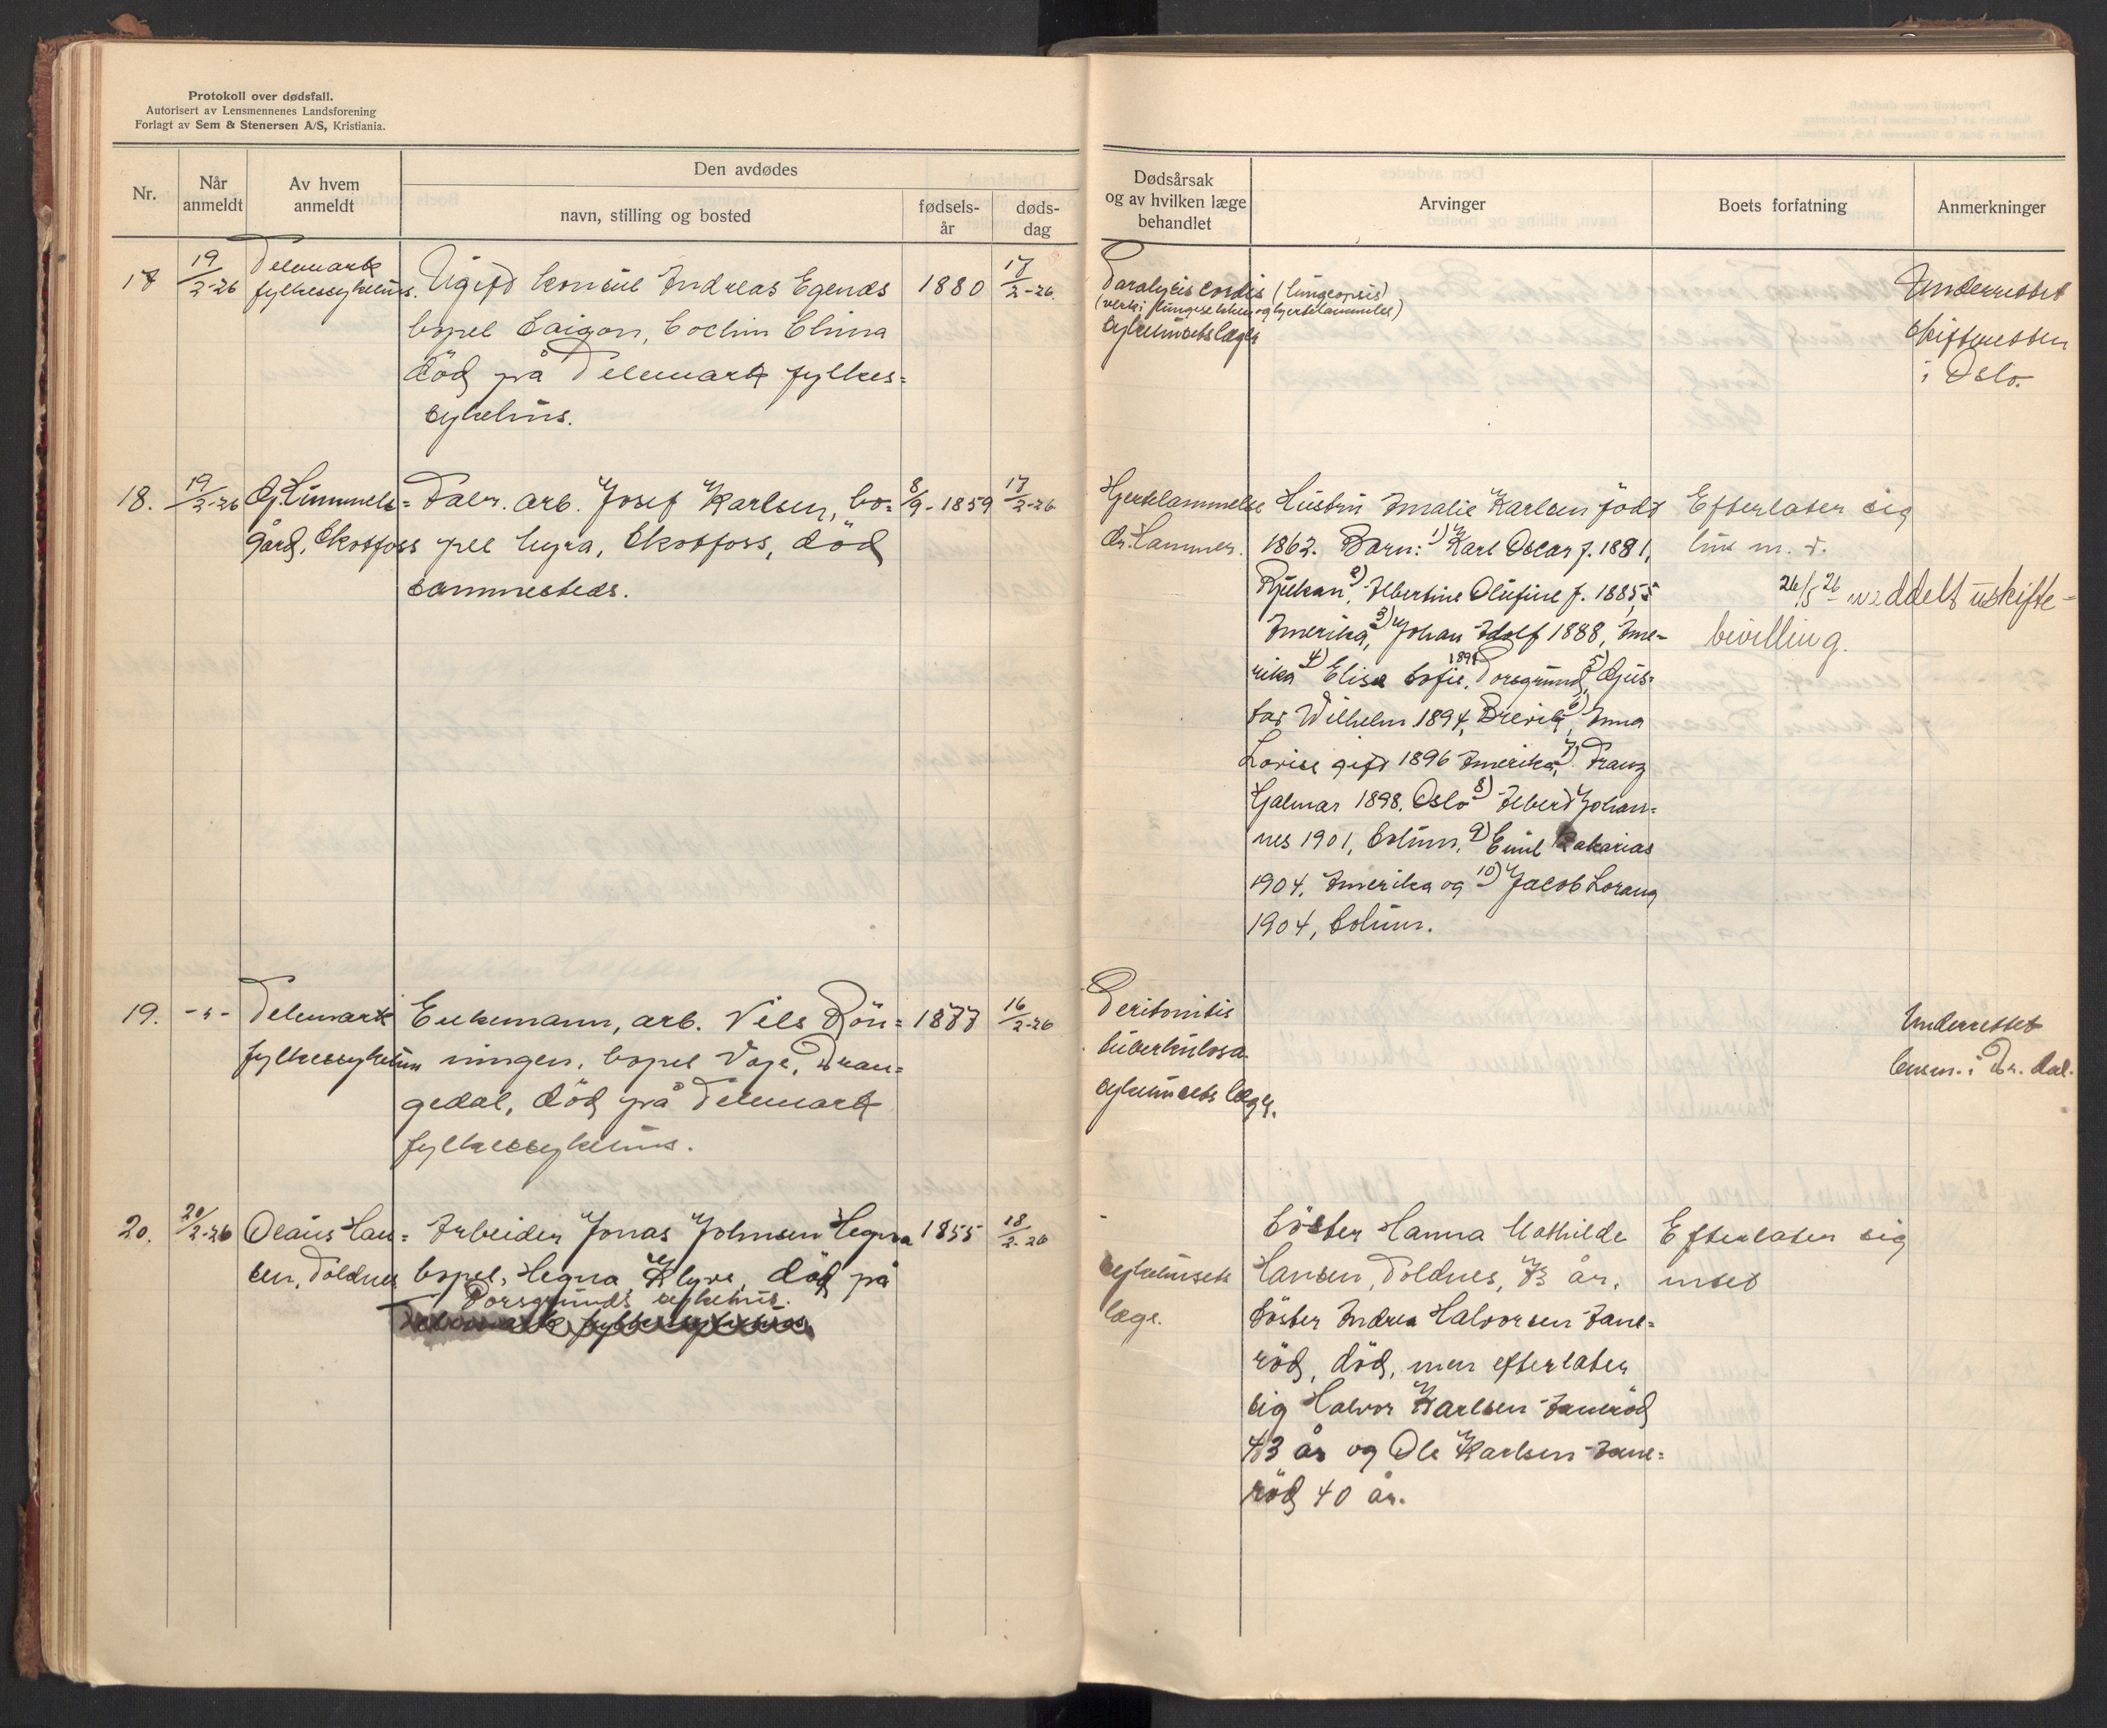 Protokoll over dødsfall.
Autorisert av Lensmennenes Landsforening
Forlagt av Sem & Stenersen A/S, Kristiania.
Nr.
Når anmeldt
Av hvem anmeldt
Den avdødes
navn, stilling og bosted
fødsels-år
døds-dag
Dødsårsak
og av hvilken læge
behandlet
Arvinger
Boets forfatning
Anmerkninger
17
19/2-26
Telemark
fylkessykehus.
Ugift konsul Andreas Egenæs
bopel Saigon, Cochin China
død på Telemark fylkes=
sykehus.
1880
17/2-26.
Paralysis cordis (lungeopsis)
sykehusets læge
Underrettet
skifteretten
i Oslo.
18.
19/2-26
Gj. Himmels=
gård, Skotfoss
Fabr. arb. Josef Karlsen, bo=
pel Myra, Skotfoss, død
sammesteds.
8/9-1859
17/2-26
Hjertelammelse
dr. Lammers.
Hustru Amalie Karlsen født
1862. Barn: 1) Karl Oscar f. 1881,
Rjukan, 2) Albertine Olufine f. 1885,
Amerika, 3) Johan Adolf 1888, Ame-
rika 4) Elise Sofie, 1891 Porsgrund, 5) Gus=
tav Wilhelm 1894, Brevik, 6) Anna
Lovise gift 1896 Amerika, 7) Franz
Hjalmar 1898, Oslo 8) Albert Johan=
nes 1901, Solum, 9) Emil Zakarias
1904, Amerika og 10) Jacob Lorang
1904, Solum.
Efterlater sig
hus m. v.
26/5 26 meddelt uskifte-
bevilling.
19.
-"-
Telemark
fylkessykehus
Enkemann, arb. Nils Rön=
ningen, bopel Voje, Dran=
gedal, død på Telemark
fylkessykehus.
1877
16/2-26
Peritonitis
tuberkulosa
sykehusets læge.
Underrettet
lensm. i Dr.dal.
20.
20/2-26
Olaus Han=
sen, Toldnes
Arbeider Jonas Johnsen Hegna
bopel, Hegna, Klyve, død på
Porsgrunds sykehus.
Telemark fylkessykehus.
1855
18/2-26
-
sykehusets
læge.
Søster Hanna Mathilde
Hansen, Toldnes, 73 år.
Søster Andrea Halvorsen Jane=
rød, død, men efterlater
sig Halvor Karlsen Janerød
43 år og Ole Karlsen Jane=
rød 40 år.
Efterlater sig
intet